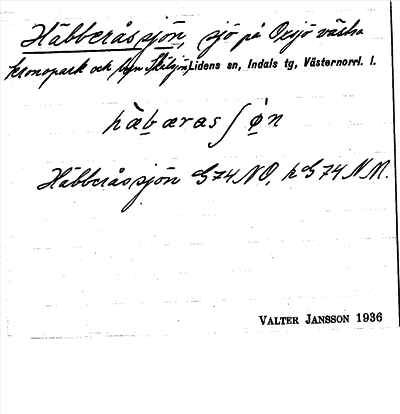 Häbberåssjön, sjö på Oxsjö västra
kronopark och byn Skiljom, Lidens sn, Indals tg, Västernorrl. l.
hàbæras∫ø̀n
Häbberåssjön G 74 NO, h G 74 NM.
VALTER JANSSON 1936